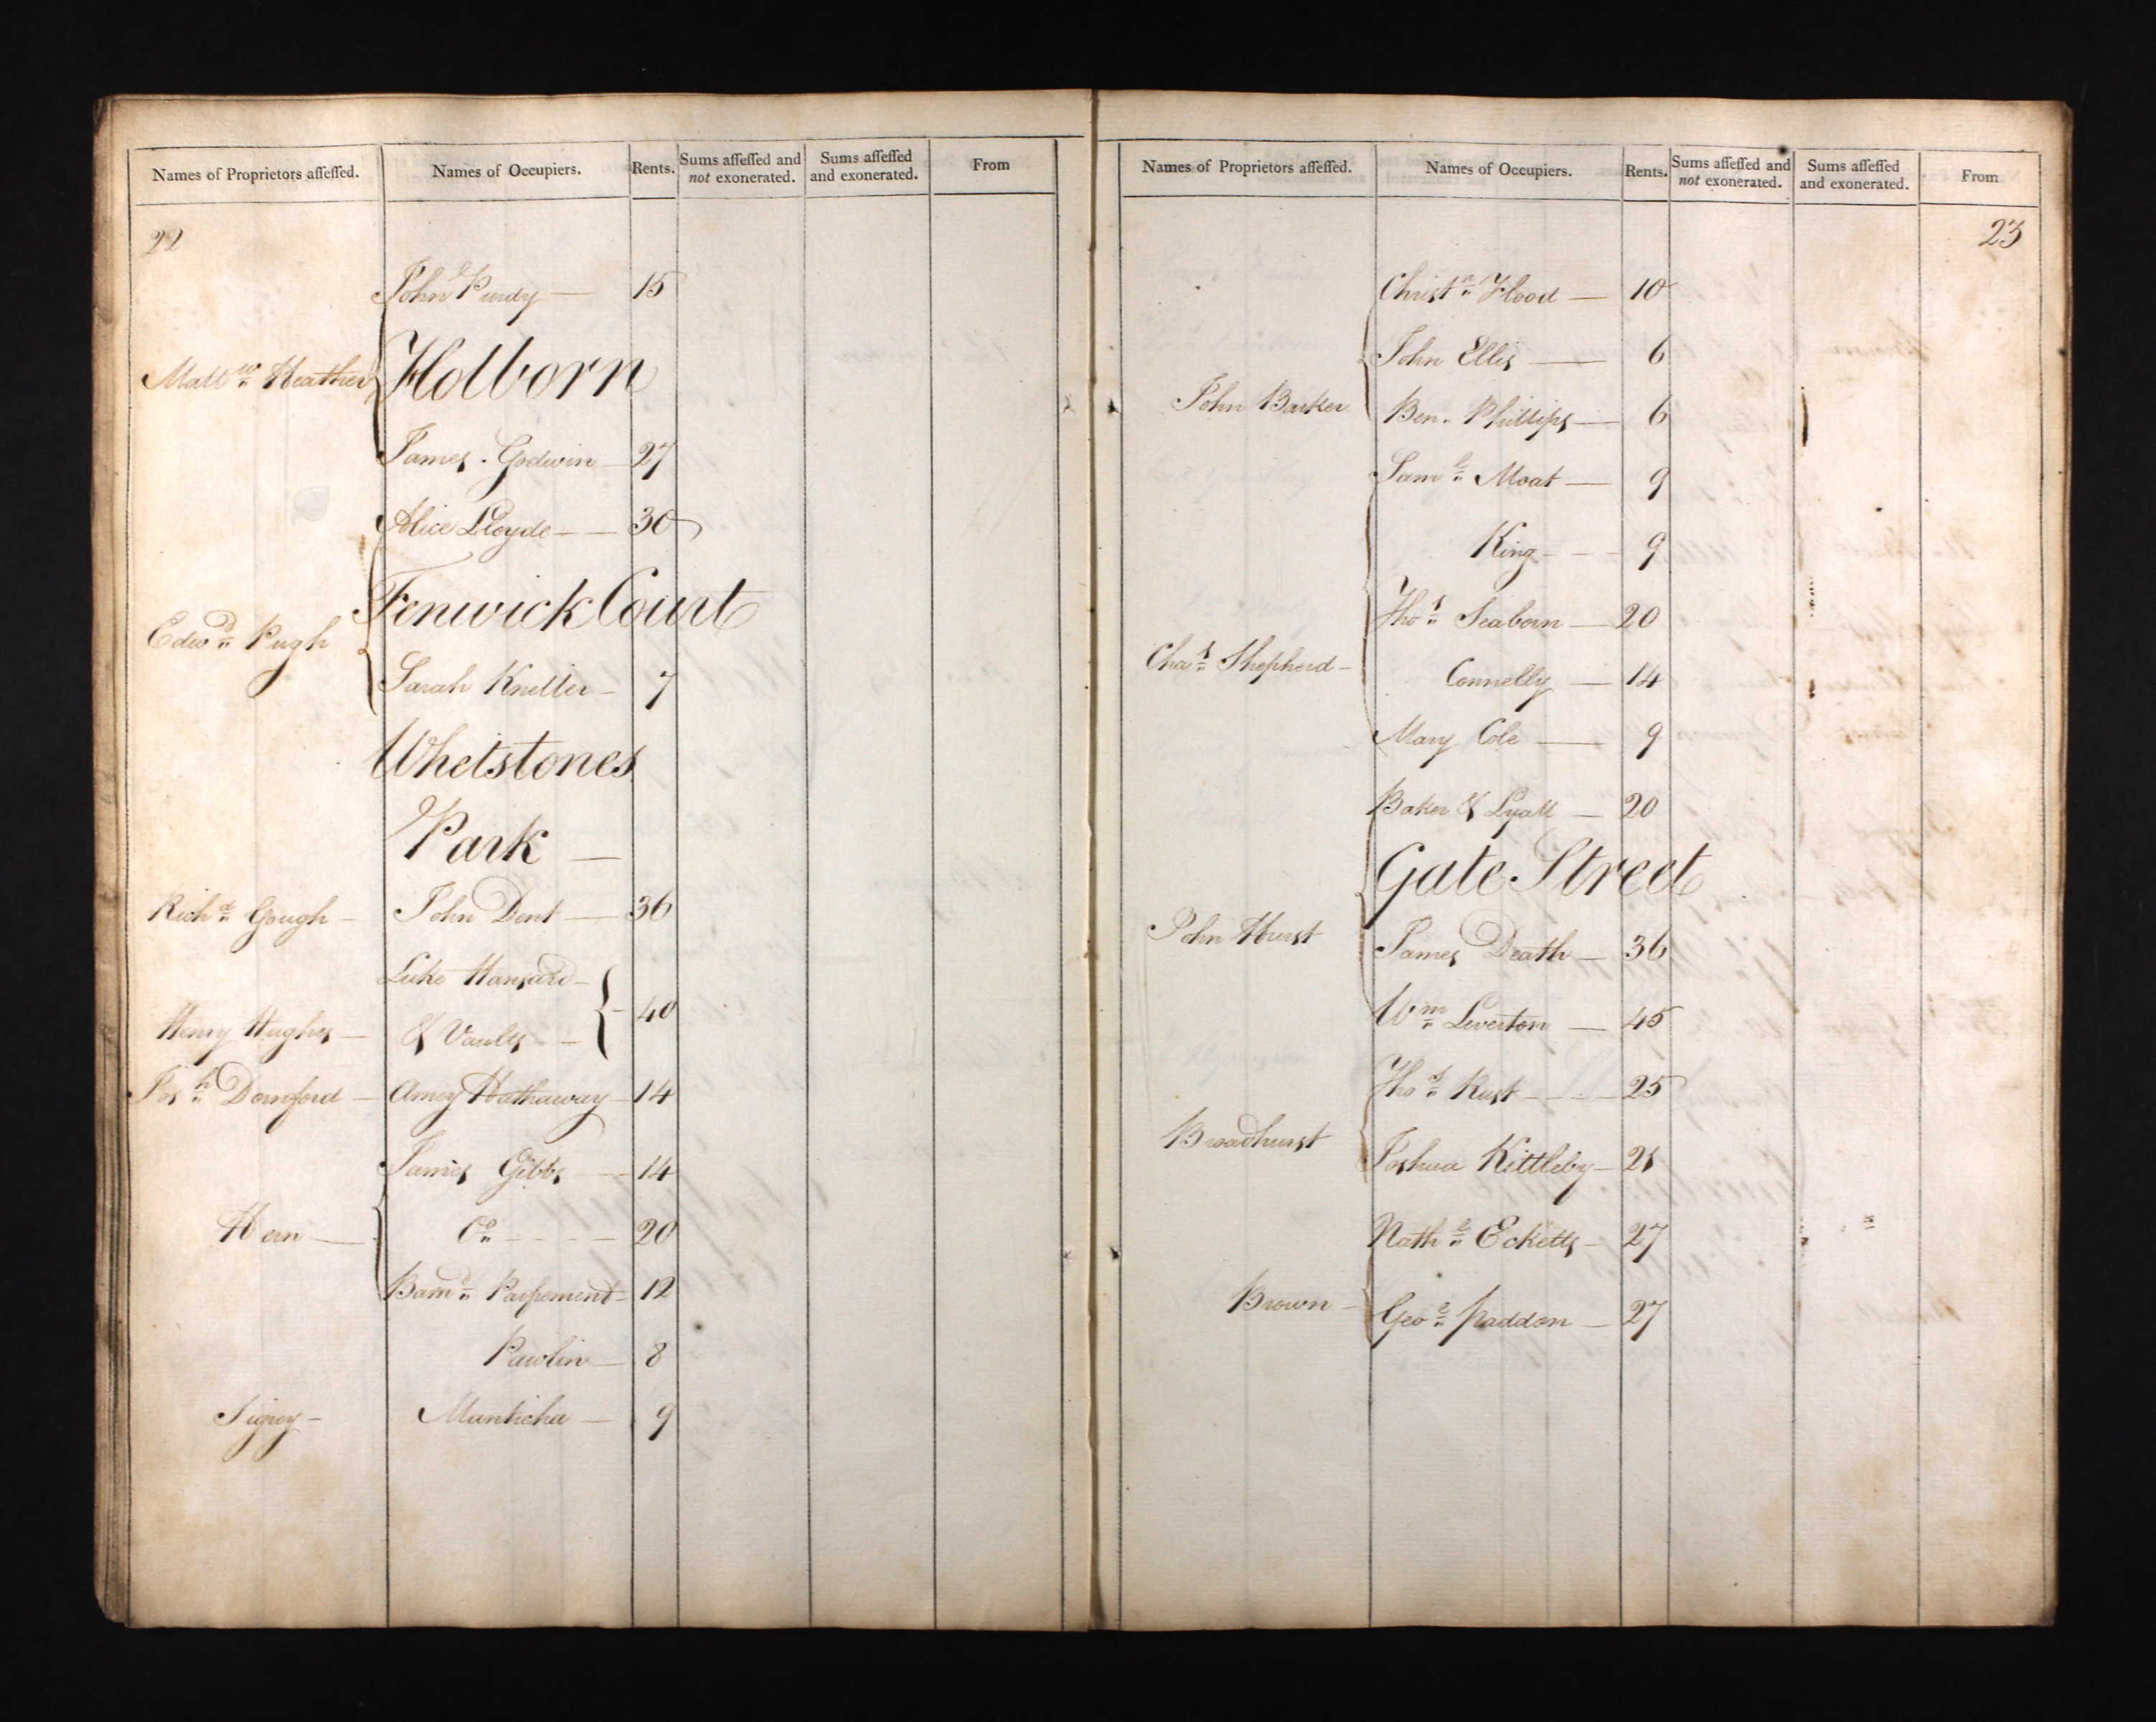 Names of Proprietors aſſeſſed. Names of Occupiers. Rents. Sums aſſeſſed and not exonerated. Sums aſſeſſed and exonerated. From
22
John Purdy — 15
Matt^w Heather Holborn
James Godwin — 27
Alice Lloyde — 30
Fenwick Court
Edw^d Pugh
Sarah Kneller — 7
Whetstones
Park —
Rich^d Gough — John Dent — 36
Luke Hansard —
Henry Hughes — & Vaults — 40
Jos^h Dornford — Amey Hathaway — 14
James Gibbs — 14
Horn — C^o — 20
Barn^d Paspement — 12
Pawlin — 8
— 9
Names of Proprietors aſſeſſed. Names of Occupiers. Rents. Sums aſſeſſed and not exonerated. Sums aſſeſſed and exonerated. From
23
Christ^n Flood — 10
John Ellis — 6
John Barker Ben. Phillips — 6
Sam^l Moat — 9
King — 9
Tho^s Seaborn — 20
Cha^s Shepherd — Connelly — 14
Mary Cole — 9
Baker & Lyall — 20
Gate Street
John Hurst James Death — 36
W^m Leverton — 45
Tho^s Rust — 25
Broadhurst Joshua Kittleby — 25
Nath^l Ecketts — 27
Brown — Geo^e Paddon — 27